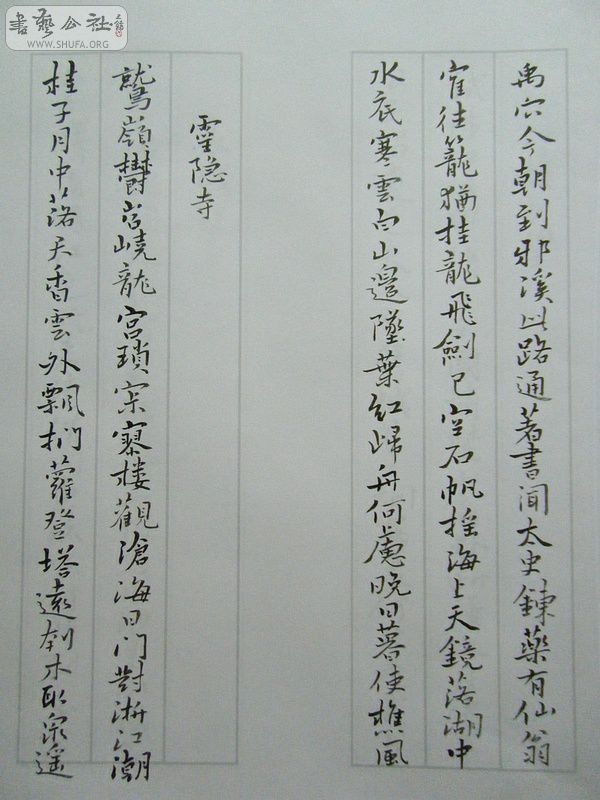 書藝公社
WWW.SHUFA.ORG
禹穴今朝到邪溪此路通著書聞太史鍊藥有仙翁
宿往籠猶挂龍飛劍已空石帆摇海上天鏡落湖中
水底寒雲白山邊墜葉紅歸舟何慮晚日暮使樵風
靈隐寺
鷲嶺鬱岧嶢龍宫瑣寀寥楼觀滄海日门對浙江潮
桂子月中落天香雲外飄捫蘿登塔遠刳木取泉遥